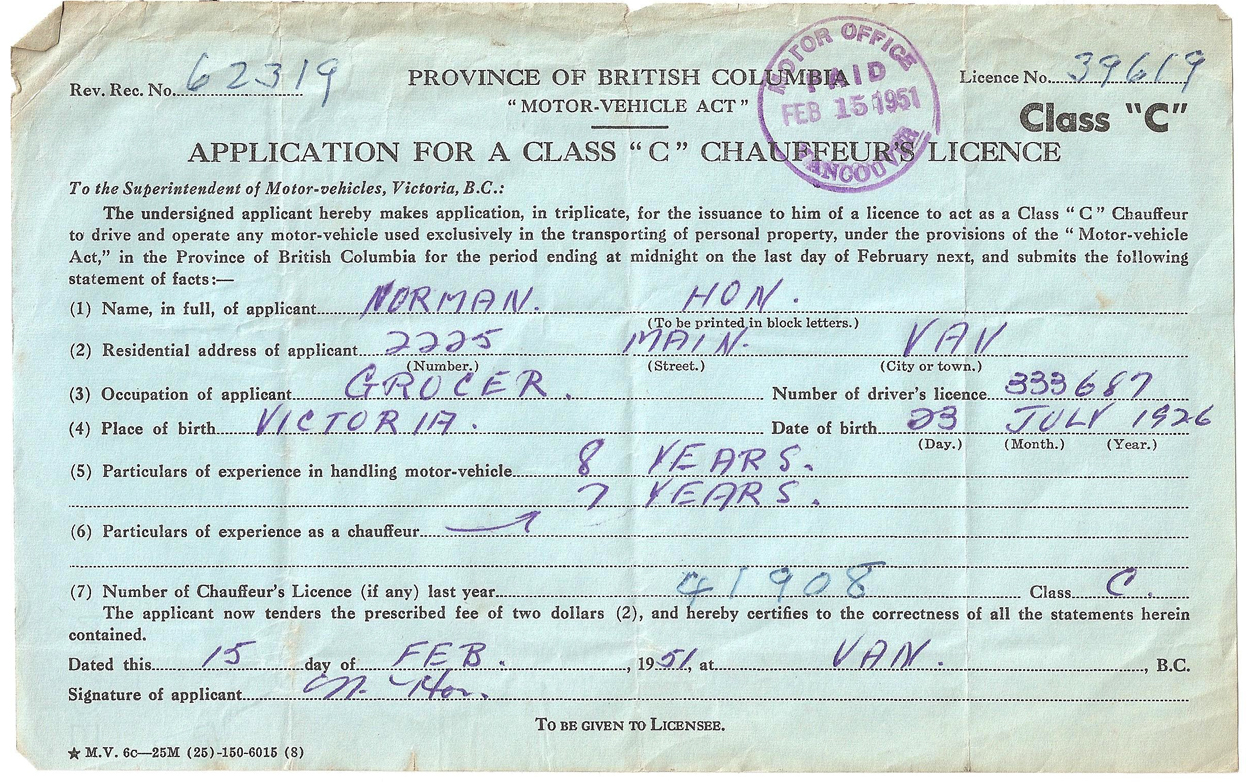 Rev. Rec. No. 62319 PROVINCE OF BRITISH COLUMBIA Licence No. 39619
"MOTOR-VEHICLE ACT" Class "C"
MOTOR OFFICE
PAID
FEB 15 1951
VANCOUVER
APPLICATION FOR A CLASS "C" CHAUFFEUR'S LICENCE
To the Superintendent of Motor-vehicles, Victoria, B.C.:
The undersigned applicant hereby makes application, in triplicate, for the issuance to him of a licence to act as a Class "C" Chauffeur
to drive and operate any motor-vehicle used exclusively in the transporting of personal property, under the provisions of the "Motor-vehicle
Act," in the Province of British Columbia for the period ending at midnight on the last day of February next, and submits the following
statement of facts:—
(1) Name, in full, of applicant NORMAN. HON.
(To be printed in block letters.)
(2) Residential address of applicant 2225 MAIN. VAN
(Number.) (Street.) (City or town.)
(3) Occupation of applicant GROCER. Number of driver's licence 333687
(4) Place of birth VICTORIA. Date of birth 23 JULY 1926
(Day.) (Month.) (Year.)
(5) Particulars of experience in handling motor-vehicle 8 YEARS.
7 YEARS.
(6) Particulars of experience as a chauffeur
(7) Number of Chauffeur's Licence (if any) last year 41908 Class C.
The applicant now tenders the prescribed fee of two dollars (2), and hereby certifies to the correctness of all the statements herein
contained.
Dated this 15 day of FEB. , 1951, at VAN. , B.C.
Signature of applicant N. Hon.
TO BE GIVEN TO LICENSEE.
★ M.V. 6c—25M (25)-150-6015 (8)